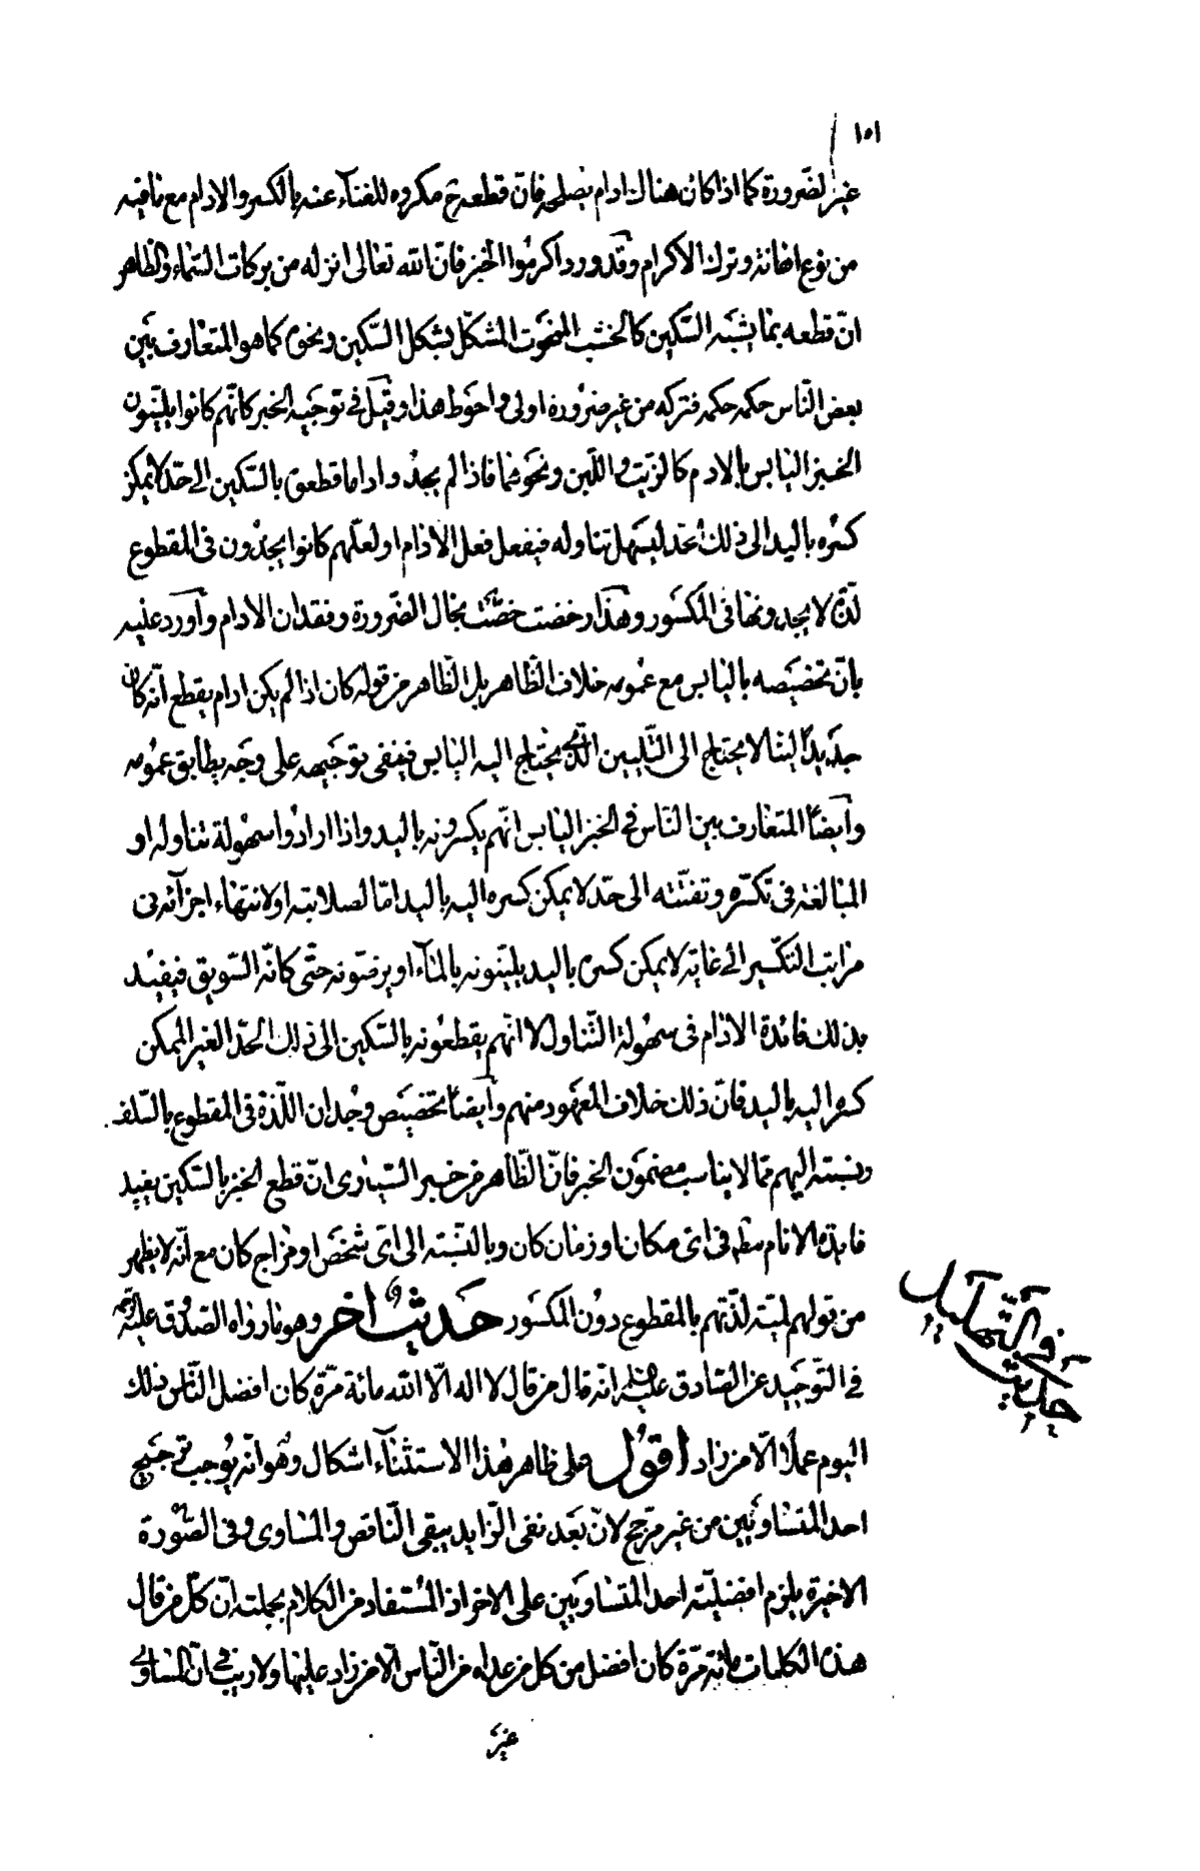 ١٥١
غير الضّرورة كما اذا كان هناك ادام يصلحه فانّ قطعه ح مكروه للغنآء عنه بالكسر والادام مع ما فيه
من نوع اهانة وترك الاكرام وقد ورد اكرموا الخبز فانّ الله تعالى انزله من بركات السّماء والظاهر
انّ قطعه بما يشبه السّكين كالخشب المنحوت المشكّل بشكل السّكين ونحوه كما هو المتعارف بين
بعض النّاس حكمه حكمه فتركه من غير ضرورة اولى واحوط هذا وقيل فى توجيه الخبر كانّهم كانوا يليّنون
الخبز اليابس بالادم كالزيت واللّبن ونحوهما فاذا لم يجدوا اداما قطعوه بالسّكين الى حدّ لا يمكن
كسره باليد الى ذلك الحد ليسهل تناوله فيفعل فعل الادام او لعلّهم كانوا يجدون فى المقطوع
لذّة لا يجدونها فى المكسور وهذا رخصت خصّت بحال الضّرورة وفقدان الادام وأورد عليه
بانّ تخصيصه باليابس مع عمومه خلاف الظّاهر بل الظّاهر من قوله كان اذا لم يكن ادام يقطع انّه كان
جديدا لينا لا يحتاج الى التّليين الّذى يحتاج اليه اليابس فينفى توجيهه على وجه يطابق عمومه
وأيضا المتعارف بين النّاس فى الخبز اليابس انّهم يكسرونه باليد واذا ارادوا سهولة تناوله او
المبالغة فى تكسّره وتفتّته الى حدّ لا يمكن كسره اليه باليد امّا لصلابته او لانتهاء اجزآئه فى
مراتب التكسير الى غاية لا يمكن كسره باليد يليّنونه بالمآء او يرضّونه حتّى كانّه السّويق فيفيد
بذلك فائدة الادام فى سهولة التّناول لا انّهم يقطعونه بالسّكين الى ذلك الحدّ الغير الممكن
كسره اليه باليد فانّ ذلك خلاف المعهود منهم وأيضا تخصيص وجدان اللّذة فى المقطوع بالسّلف
ونسبته اليهم ممّا لا يناسب مضمون الخبر فانّ الظّاهر من خبر السّيارى انّ قطع الخبز بالسّكين يفيد
فايدة الادام مط فى اى مكان او زمان كان وبالنّسبة الى اىّ شخص او مزاج كان مع انّه لا يظهر
من قولهم لميّة لذّتهم بالمقطوع دون المكسور حديث اخر وهو ما رواه الصّدوق عليه الرّحمة
فى التّوحيد عن الصّادق عليه السلم انّه قال من قال لا اله الّا الله مائة مرّة كان افضل النّاس ذلك
اليوم عملا الّا من زاد اقول على ظاهر هذا الاستثنآء اشكال وهو انّه يوجب ترجيح
احد المتساويين من غير مرجّح لانّ بعد نفى الزّايد يبقى النّاقص والمساوى وفى الصّورة
الاخيرة يلزم افضليّة احد المتساويين على الاخر اذ المستفاد من الكلام بجملته انّ كلّ من قال
هذه الكلمات مائة مرّة كان افضل من كل من عداه من النّاس الّا من زاد عليها ولا ريب فى انّ المساوى
غير
حديث
فى التّهليل